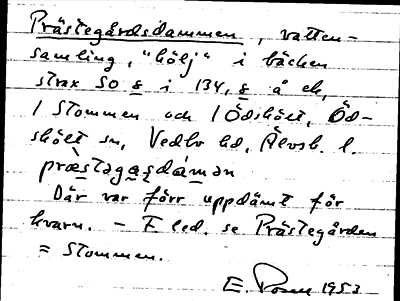 Prästegårdsdammen, vatten-
samling, "hölj" i bäcken
strax SO g i 134, g å ek,
1 Stommen och 1 Ödskölt, Öd-
skölt sn, Vedbo hd, Älvsb. l.
præstagaṣdáman
Där var förr uppdämt för
kvarn. – F led. se Prästegården
= Stommen.
E. Rosen 1953